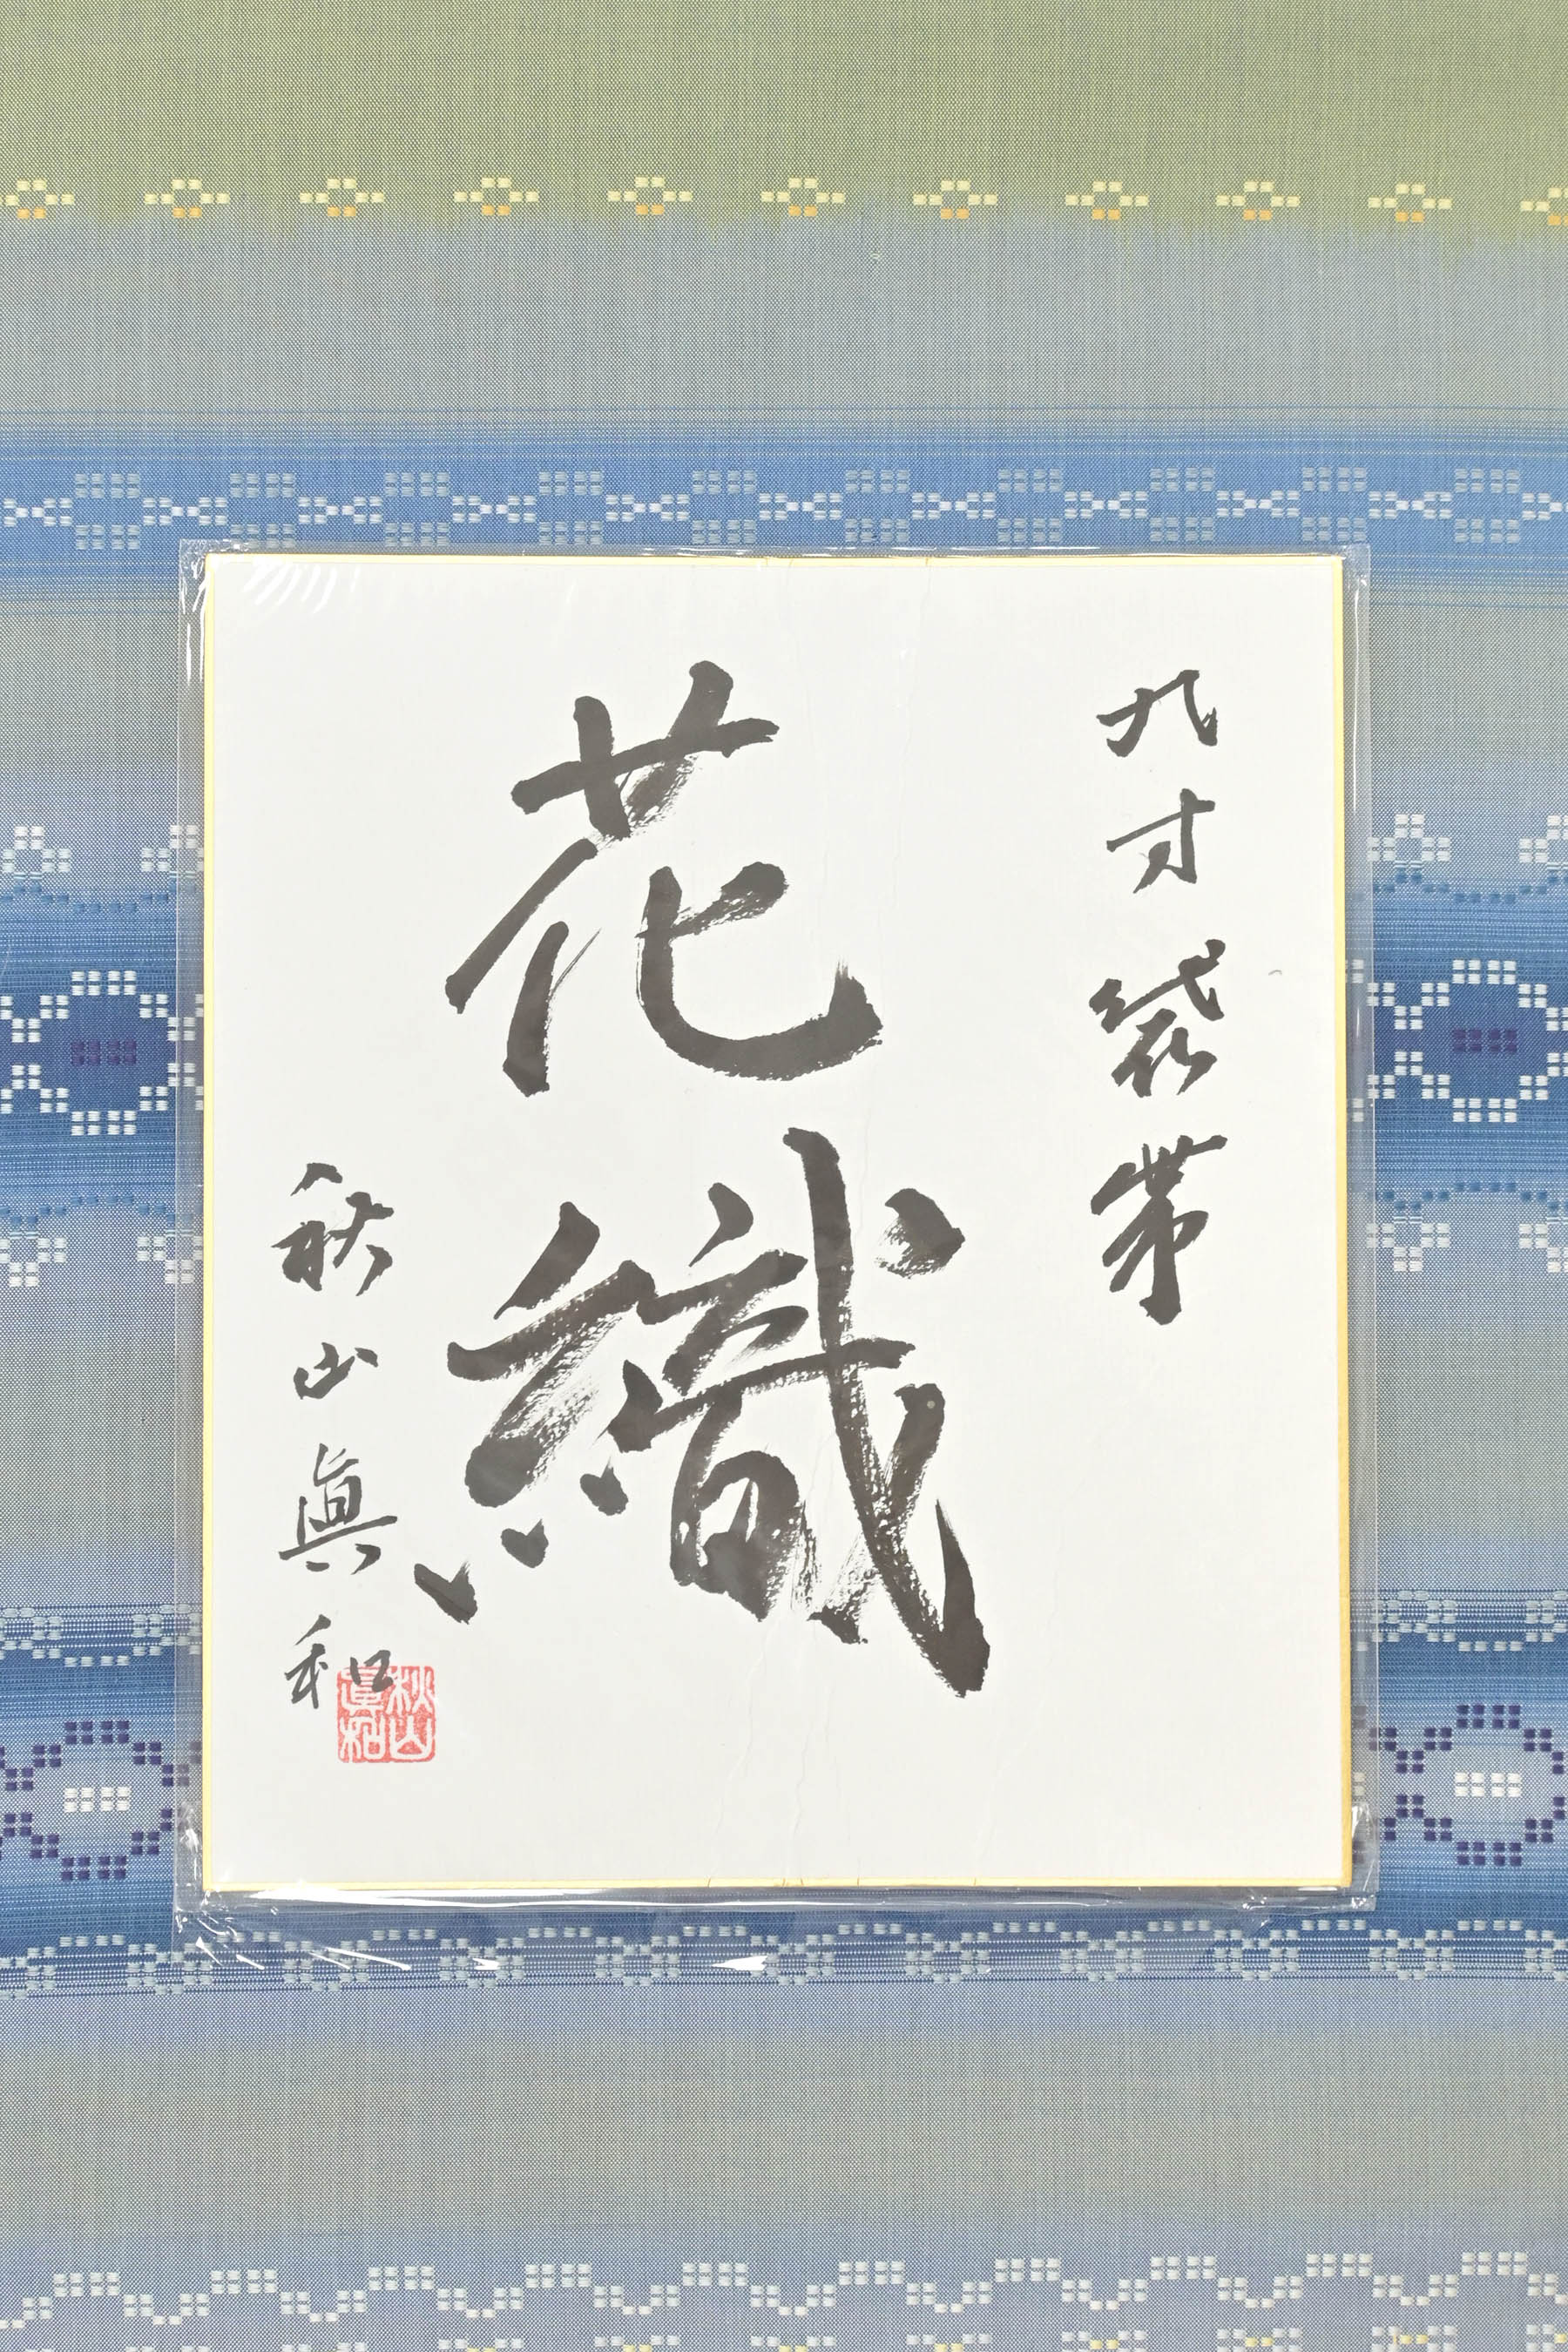 九寸袋帯
花織
秋山眞和
秋山眞和